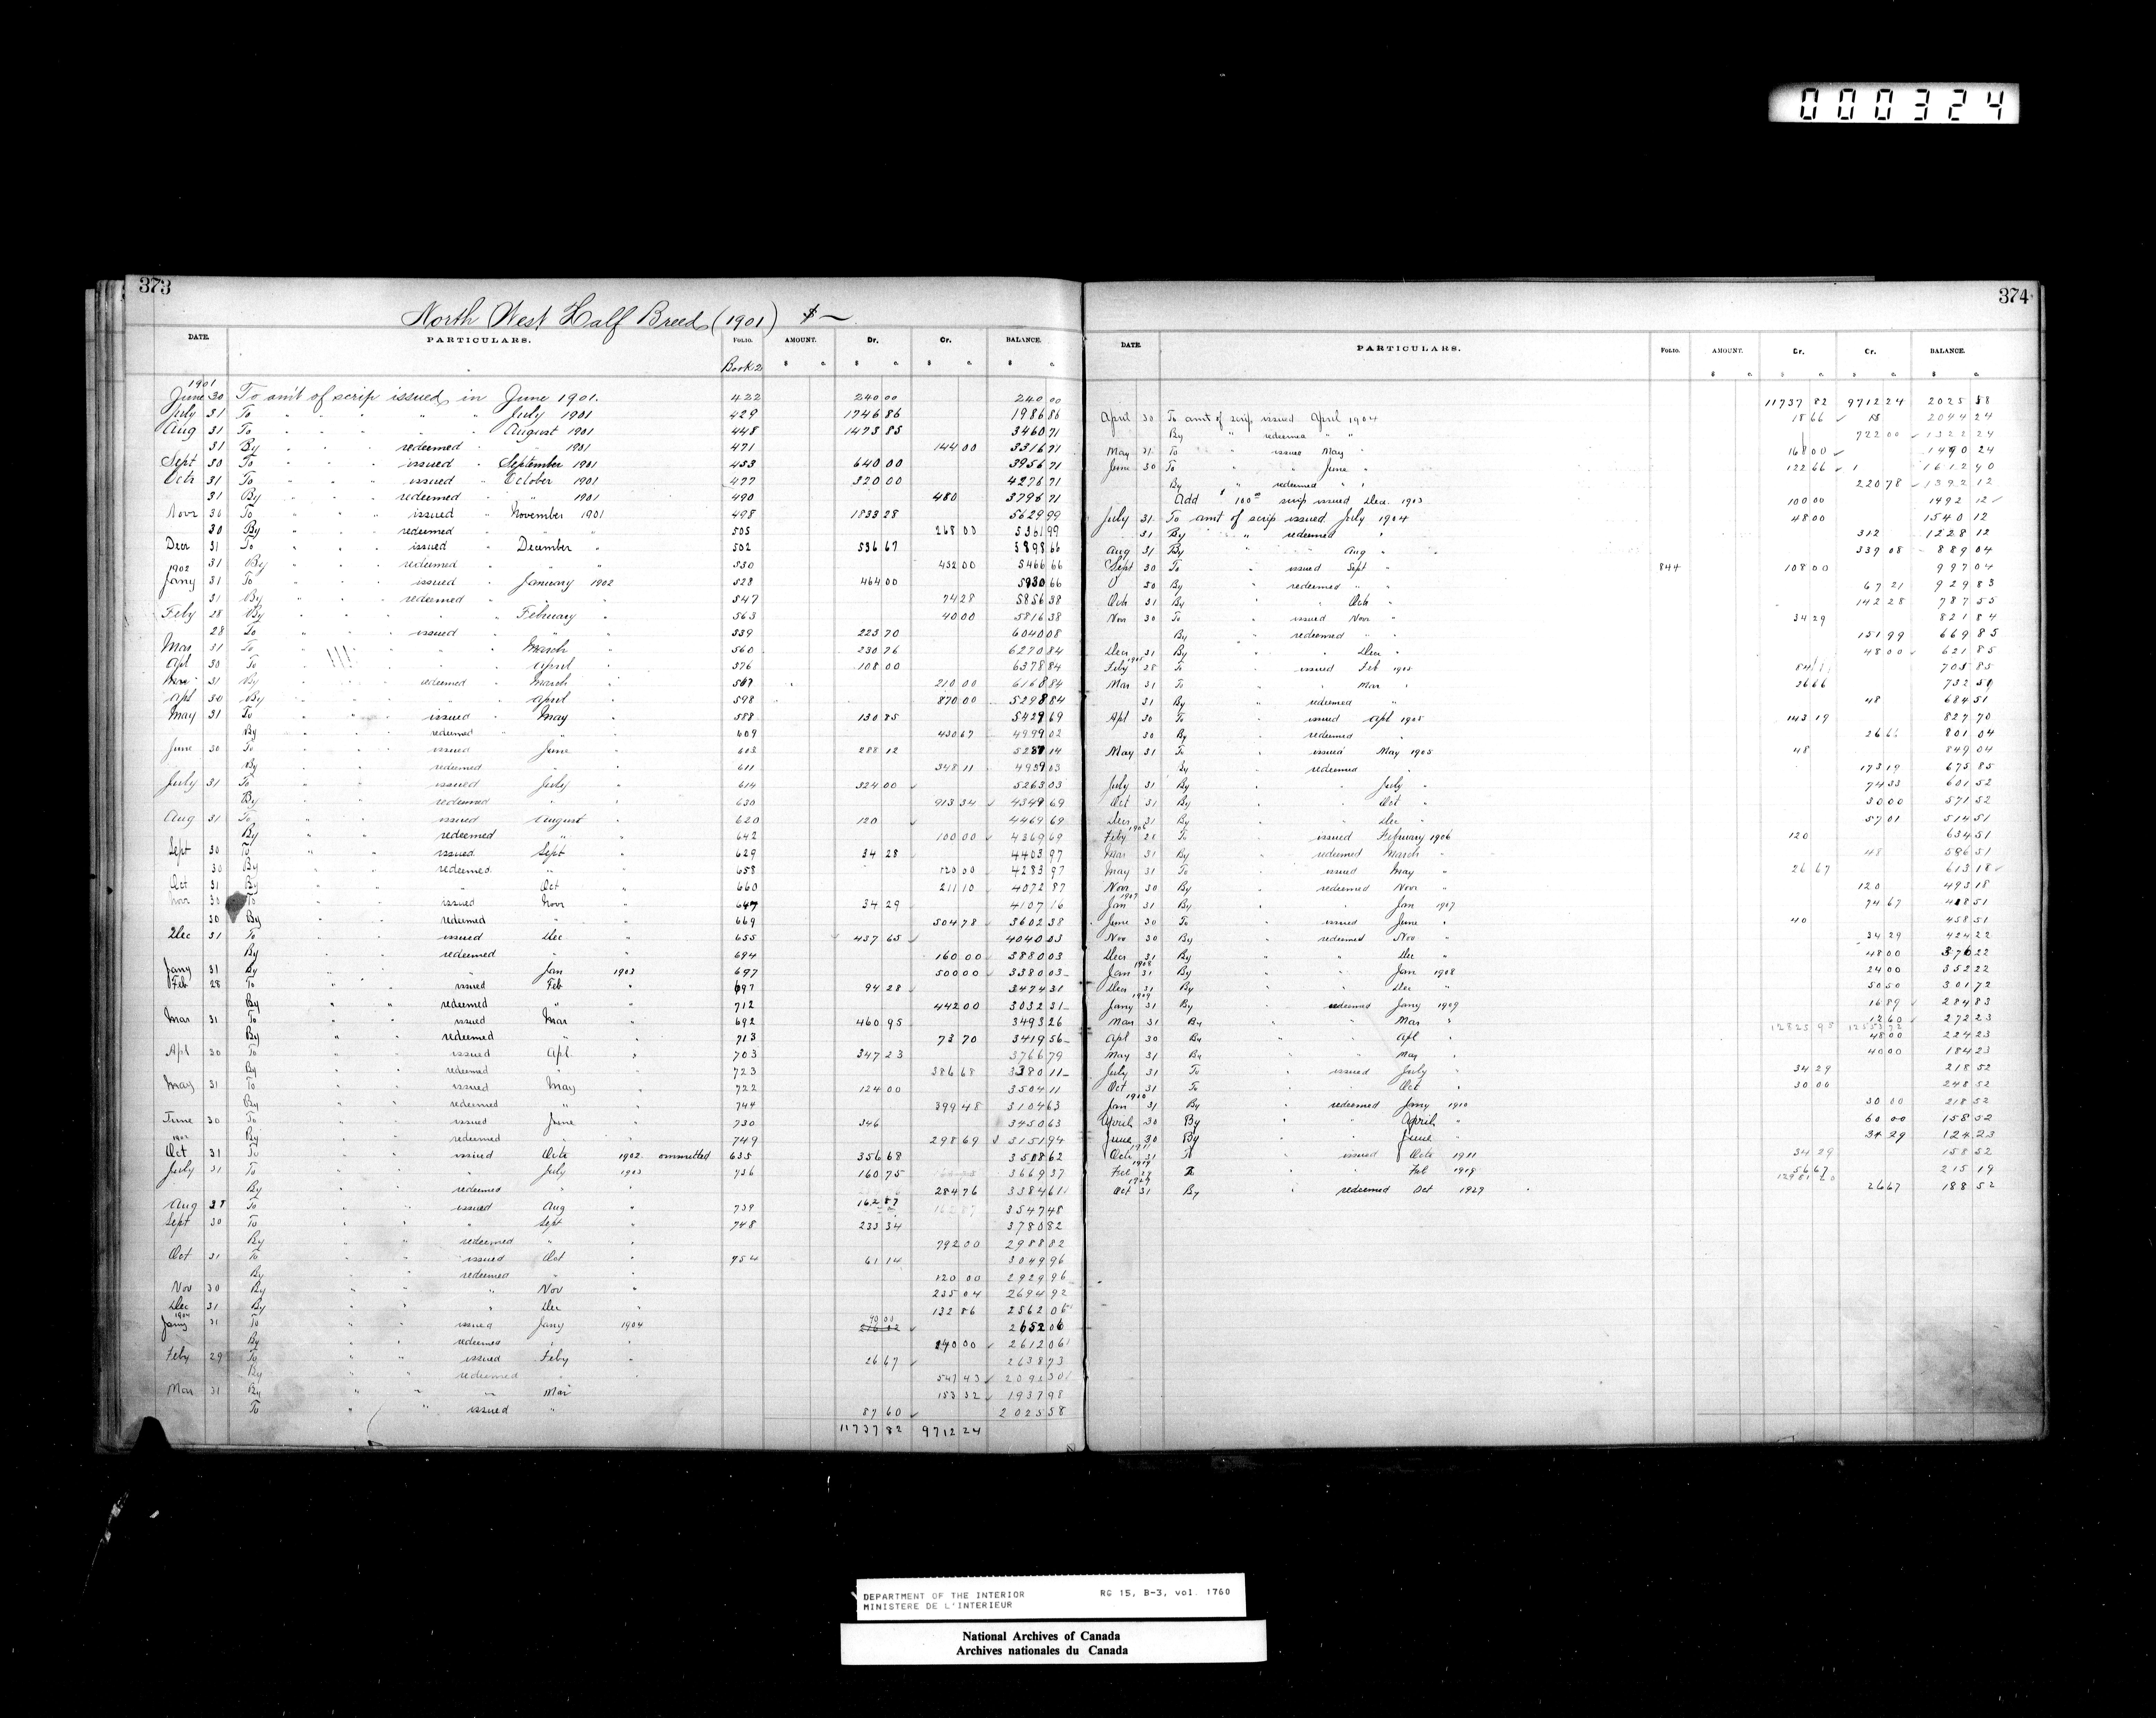 000324
373
North West Half Breed (1901) $ —
DATE. PARTICULARS. FOLIO. AMOUNT. Dr. Cr. BALANCE.
Book 2 $ c. $ c. $ c. $ c.
1901
June 30 To am't of scrip issued in June 1901. 422 240 00 240 00
July 31 To " " " " " July 1901 429 1746 86 1986 86
Aug 31 To " " " " " August 1901 448 1473 85 3460 71
31 By " " " redeemed " " 1901 471 144 00 3316 71
Sept 30 To " " " issued " September 1901 453 640 00 3956 71
Octr 31 To " " " issued " October 1901 477 320 00 4276 71
31 By " " " redeemed " " 1901 490 480 3796 71
Novr 30 To " " " issued " November 1901 498 1833 28 5629 99
30 By " " " redeemed " " " 505 268 00 5361 99
Decr 31 To " " " issued " December " 502 536 67 5898 66
31 By " " " redeemed " " " 530 432 00 5466 66
1902
Jany 31 To " " " issued " January 1902 528 464 00 5930 66
31 By " " " redeemed " " " 547 74 28 5856 38
Feby 28 By " " " " " February " 563 40 00 5816 38
28 To " " " issued " " " 539 223 70 6040 08
Mar 31 To " " " " " March " 560 230 76 6270 84
Apl 30 To " " " " " April " 576 108 00 6378 84
Mar 31 By " " " redeemed " March " 587 210 00 6168 84
Apl 30 By " " " " " April " 598 870 00 5298 84
May 31 To " " " issued " May " 588 130 85 5429 69
By " " " redeemed " " " 609 430 67 4999 02
June 30 To " " " issued June " 613 288 12 5287 14
By " " " redeemed " " 611 348 11 4939 03
July 31 To " " issued July " 614 324 00 5263 03
By " " redeemed " " 630 913 34 4349 69
Aug 31 To " " issued August " 620 120 4469 69
By " " redeemed " " 642 100 00 4369 69
Sept 30 To " " issued Sept " 629 34 28 4403 97
30 By " " redeemed " " 658 120 00 4283 97
Oct 31 By " " " Oct " 660 211 10 4072 87
Novr 30 To " " issued Novr " 647 34 29 4107 16
30 By " " redeemed " " 669 504 78 3602 38
Dec 31 To " " issued Dec " 655 437 65 4040 03
By " " redeemed " " 694 160 00 3880 03
Jany 31 By " " " Jan 1903 697 500 00 3380 03
Feb 28 To " " issued Feb " 697 94 28 3474 31
By " " redeemed " " 712 442 00 3032 31
Mar 31 To " " issued Mar " 692 460 95 3493 26
By " " redeemed " " 713 73 70 3419 56
Apl 30 To " " issued Apl. " 703 347 23 3766 79
By " " redeemed " " 723 386 68 3380 11
May 31 To " " issued May " 722 124 00 3504 11
By " " redeemed " " 744 399 48 3104 63
June 30 To " " issued June " 730 346 3450 63
By " " redeemed " " 749 298 69 3151 94
1902
Oct 31 To " " issued Octr 1902 ommitted 635 356 68 3508 62
July 31 To " " " July 1903 736 160 75 3669 37
By " " redeemed " " 284 76 3384 61
Aug 31 To " " issued Aug " 739 162 87 3547 48
Sept 30 To " " " Sept " 748 233 34 3780 82
By " " redeemed " " 792 00 2988 82
Oct 31 To " " issued Oct " 754 61 14 3049 96
By " " redeemed " " 120 00 2929 96
Nov 30 By " " " Nov " 235 04 2694 92
Dec 31 By " " " Dec " 132 86 2562 06
1904
Jany 31 To " " issued Jany 1904 90 00 2652 06
By " " redeemed " " 40 00 2612 06
Feby 29 To " " issued Feby " 26 67 2638 73
By " " redeemed " " 547 43 2091 30
Mar 31 By " " " Mar 153 32 1937 98
To " " issued " 87 60 2025 58
11737 82 9712 24
374
DATE. PARTICULARS. FOLIO. AMOUNT. Cr. Cr. BALANCE.
$ c. $ c. $ c. $ c.
11737 82 9712 24 2025 58
April 30 To amt of scrip issued April 1904 18 66 2044 24
By " redeemed " " 722 00 1322 24
May 31 To " issued May " 168 00 1490 24
June 30 To " " June " 122 66 1612 90
By " redeemed " " 220 78 1392 12
Add $100 00 scrip issued Decr. 1903 100 00 1492 12
July 31 To amt of scrip issued July 1904 48 00 1540 12
31 By " redeemed " 312 1228 12
Aug 31 By " " Aug " 339 08 889 04
Sept 30 To " issued Sept " 844 108 00 997 04
30 By " redeemed " " 67 21 929 83
Octr 31 By " " Octr " 142 28 787 55
Nov 30 To " issued Novr " 34 29 821 84
By " redeemed " " 151 99 669 85
Decr 31 By " " Decr " 48 00 621 85
1905
Feby 28 To " issued Feb 1905 84 705 85
Mar 31 To " " Mar " 26 66 732 51
31 By " redeemed " 48 684 51
Apl 30 To " issued Apl 1905 143 19 827 70
30 By " redeemed " 26 66 801 04
May 31 To " issued May 1905 48 849 04
By " redeemed " 173 19 675 85
July 31 By " " July " 74 33 601 52
Oct 31 By " " Oct " 30 00 571 52
Decr 31 By " " Decr " 57 01 514 51
1906
Feby 28 To " issued February 1906 120 634 51
Mar 31 By " redeemed March " 48 586 51
May 31 To " issued May " 26 67 613 18
Novr 30 By " redeemed Novr " 120 493 18
1907
Jan 31 By " " Jan 1907 74 67 418 51
June 30 To " issued June " 40 458 51
Nov 30 By " redeemed Nov " 34 29 424 22
Decr 31 By " " Dec " 48 00 376 22
1908
Jan 31 By " " Jan 1908 24 00 352 22
Decr 31 By " " Dec " 50 50 301 72
1909
Jany 31 By " redeemed Jany 1909 16 89 284 83
Mar 31 By " " Mar " 12 60 272 23
12825 95
Apl 30 By " " Apl " 48 00 224 23
May 31 By " " May " 40 00 184 23
July 31 To " issued July " 34 29 218 52
Oct 31 To " " Oct " 30 00 248 52
1910
Jan 31 By " redeemed Jany 1910 30 00 218 52
April 30 By " " April " 60 00 158 52
June 30 By " " June " 34 29 124 23
1911
Octr 31 To " issued Octr 1911 34 29 158 52
1919
Feb To " " Feb 1919 56 67 215 19
1929
Oct 31 By " redeemed Oct 1929 26 67 188 52
DEPARTMENT OF THE INTERIOR RG 15, B-3, vol. 1760
MINISTERE DE L'INTERIEUR
National Archives of Canada
Archives nationales du Canada